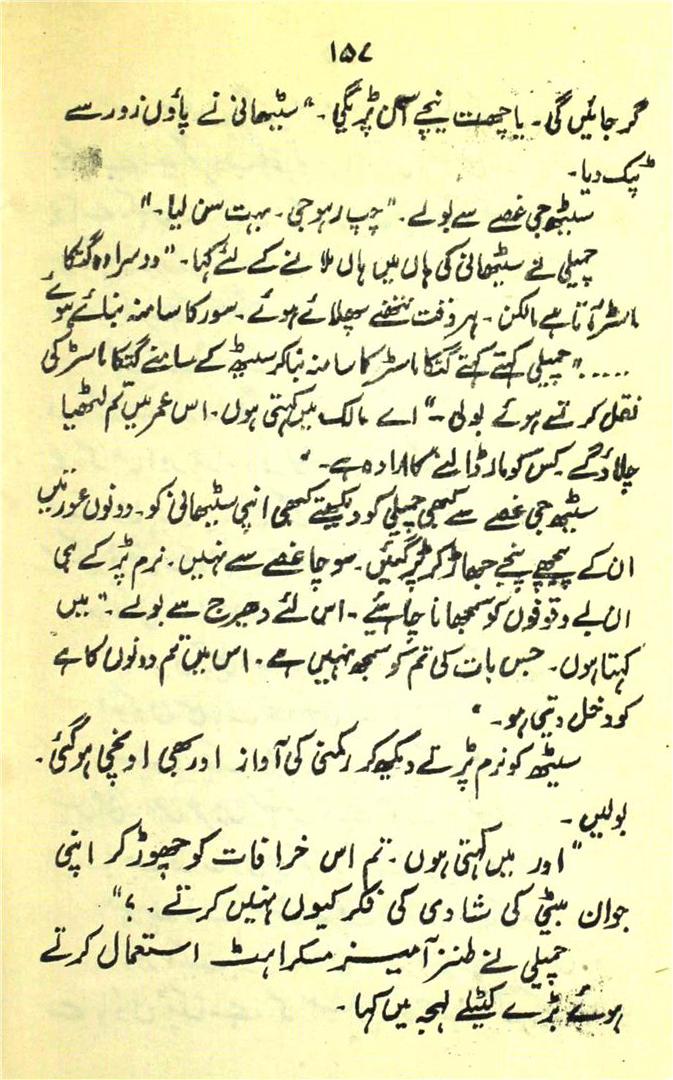 ۱۵۷
گر جائیں گی۔ یا چھت نیچے آن پڑیگی۔“ سیٹھانی نے پاؤں زور سے
پٹک دیا۔
سیٹھ جی غصے سے بولے۔ ”چپ رہو جی۔ بہت سن لیا۔“
چمپلی نے سیٹھانی کی ہاں میں ہاں ملانے کے لئے کہا۔ ”دوسرا وہ گتکا
ماسٹر آتا ہے مالکن۔ ہر وقت نتھنے پھلائے ہوئے۔ سور کا سا منہ بنائے ہوئے
.....“ چمپلی کہتے کہتے گتکا ماسٹر کا سا منہ بنا کر سیٹھ کے سامنے گتکا ماسٹر کی
نقل کرتے ہوئے بولی۔ ”اے مالک میں کہتی ہوں۔ اس عمر میں تم لٹھیا
چلاؤ گے۔ کس کو مار ڈالنے کا ارادہ ہے۔“
سیٹھ جی غصے سے کبھی چمپلی کو دیکھتے کبھی اپنی سیٹھانی کو۔ دونوں عورتیں
ان کے پیچھے پنجے جھاڑ کر پڑ گئیں۔ سوچا غصے سے نہیں۔ نرم پڑ کے ہی
ان بے وقوفوں کو سمجھانا چاہئیے۔ اس لئے دھیرج سے بولے۔ ”میں
کہتا ہوں۔ جس بات کی تم کو سمجھ نہیں ہے۔ اس میں تم دونوں کاہے
کو دخل دیتی ہو۔“
سیٹھ کو نرم پڑتے دیکھ کر رکمنی کی آواز اور بھی اونچی ہو گئی۔
بولیں۔
”اور میں کہتی ہوں۔ تم اس خرافات کو چھوڑ کر اپنی
جوان بیٹی کی شادی کی فکر کیوں نہیں کرتے۔؟“
چمپلی نے طنز آمیز مسکراہٹ استعمال کرتے
ہوئے بڑے کٹیلے لہجہ میں کہا۔